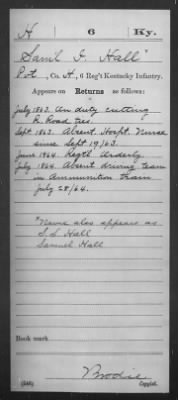 H 6 Ky.
Sam'l I. Hall*
Pvt., Co. H, 6 Reg't Kentucky Infantry.
Appears on Returns as follows:
July 1863. On duty cutting
R. Road ties.
Sept. 1863. Absent, Hospt. Nurse
since Sept 19/63.
June 1864. Regtl Orderly.
July 1864. Absent driving team
in Ammunition train
July 28/64.
*Name also appears as
S. S. Hall
Samuel Hall
Book mark
Brodie
(546) Copyist.